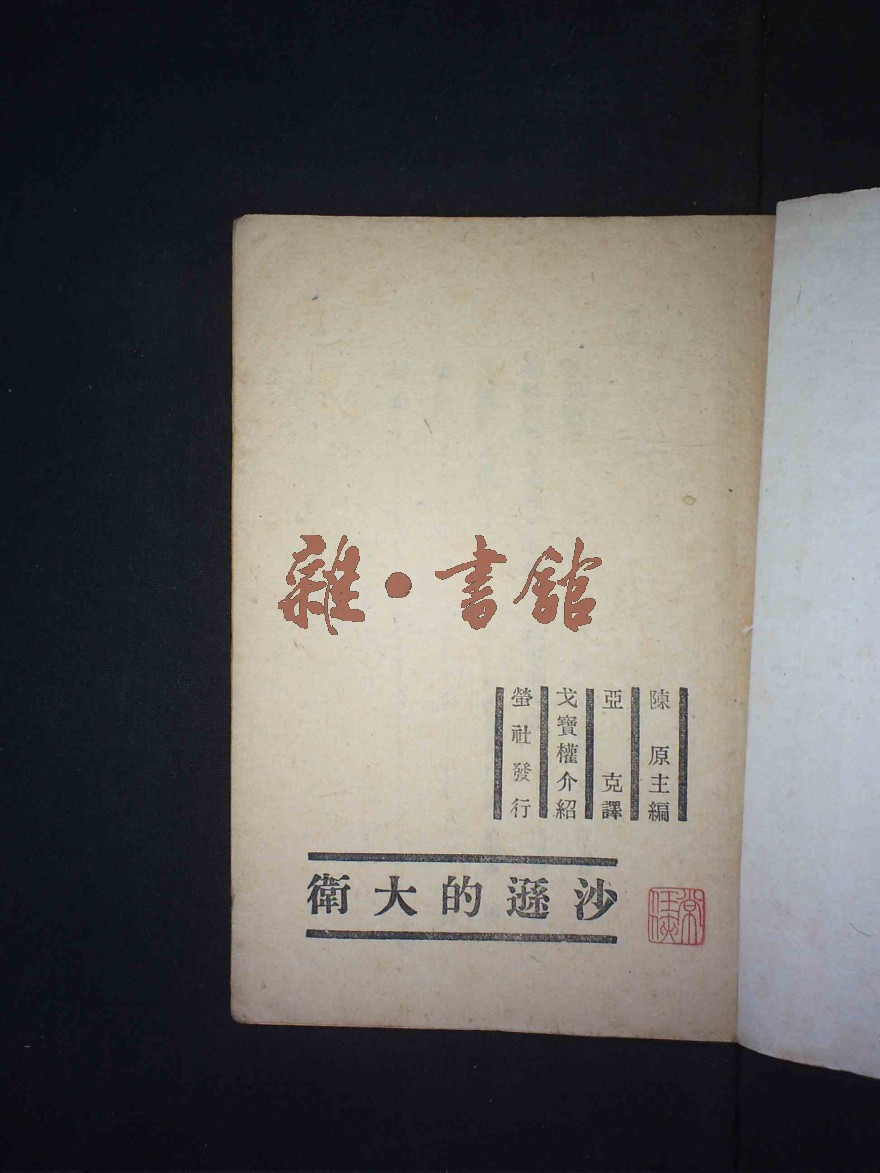 雜·書館
陳原主編
亞克譯
戈寶權介紹
螢社發行
沙遜的大衛